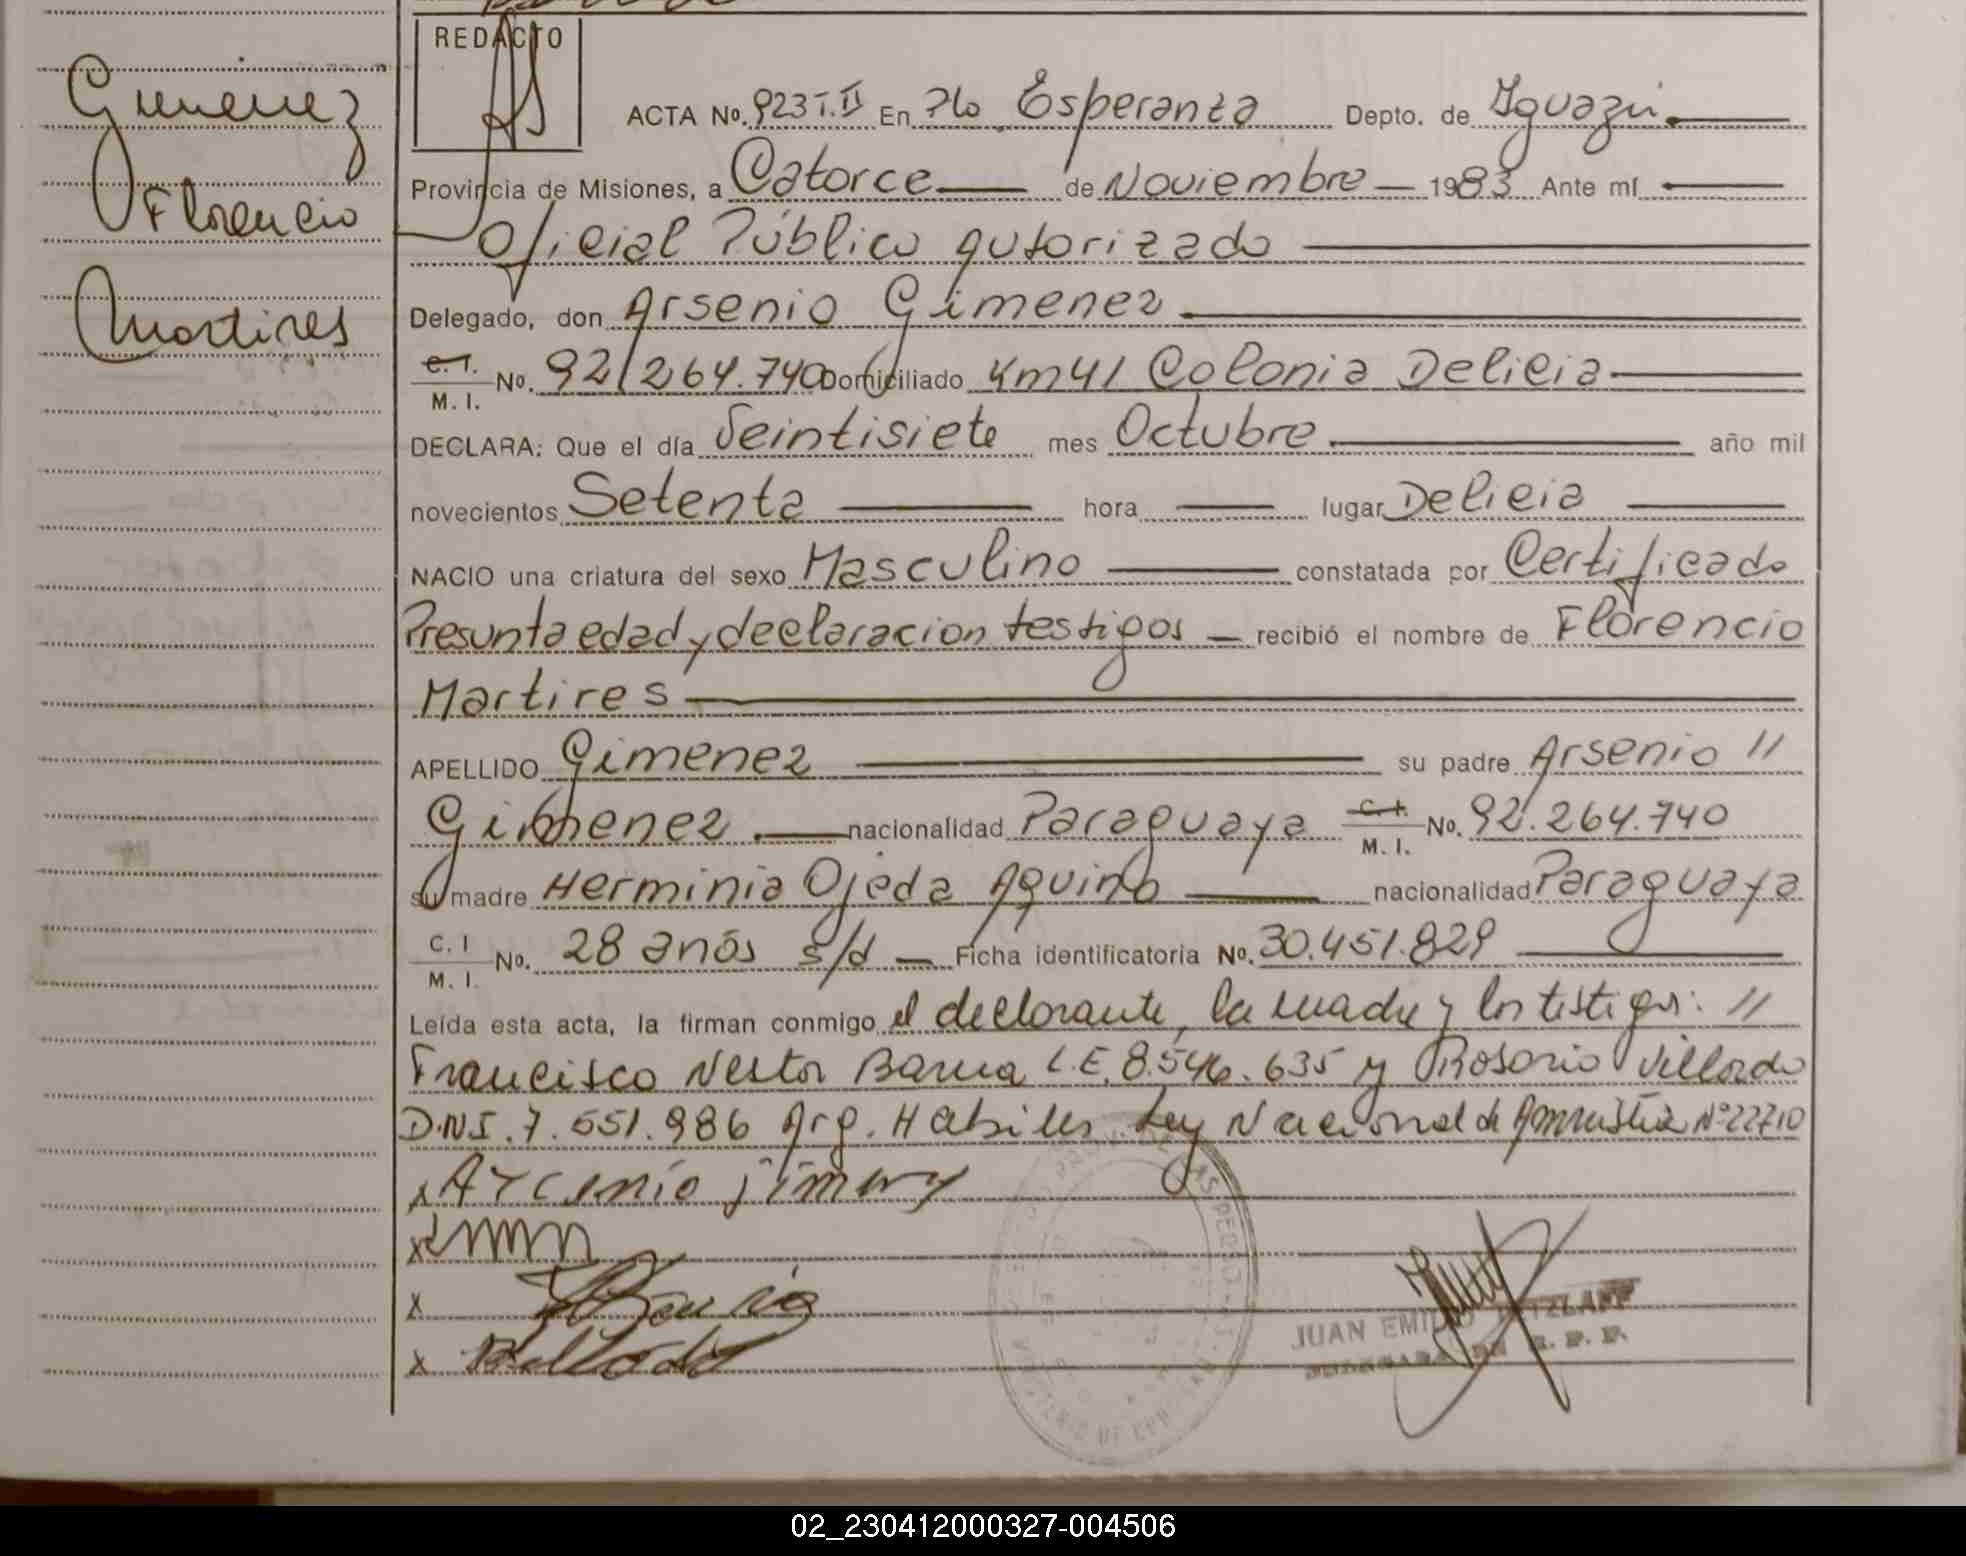 Gimenez
Florencio
Martires
REDACTO
ACTA No. 923 T.II En Pto Esperanza Depto. de Iguazú
Provincia de Misiones, a Catorce de Noviembre 1983 Ante mí
Oficial Público autorizado
Delegado, don Arsenio Gimenez
C.I. M.I. No. 92/264.740 Domiciliado Km41 Colonia Delicia
DECLARA: Que el día Veintisiete mes Octubre año mil
novecientos Setenta hora lugar Delicia
NACIO una criatura del sexo Masculino constatada por Certificado
Presunta edad y declaracion testigos recibió el nombre de Florencio
Martires
APELLIDO Gimenez su padre Arsenio //
Gimenez nacionalidad Paraguaya C.I. M.I. No. 92.264.740
su madre Herminia Ojeda Aquino nacionalidad Paraguaya
C.I M.I. No. 28 años s/d Ficha identificatoria No. 30.451.829
Leída esta acta, la firman conmigo el declarante, la madre y los testigos: //
Francisco Nestor Barua L.E. 8.546.635 y Rosario Villordo
D.N.I. 7.551.986 Arg. Habiles Ley Nacional de Amnistia Nº 22710
x Arcenio jimenez
x
x
x
JUAN EMILIO
02_230412000327-004506